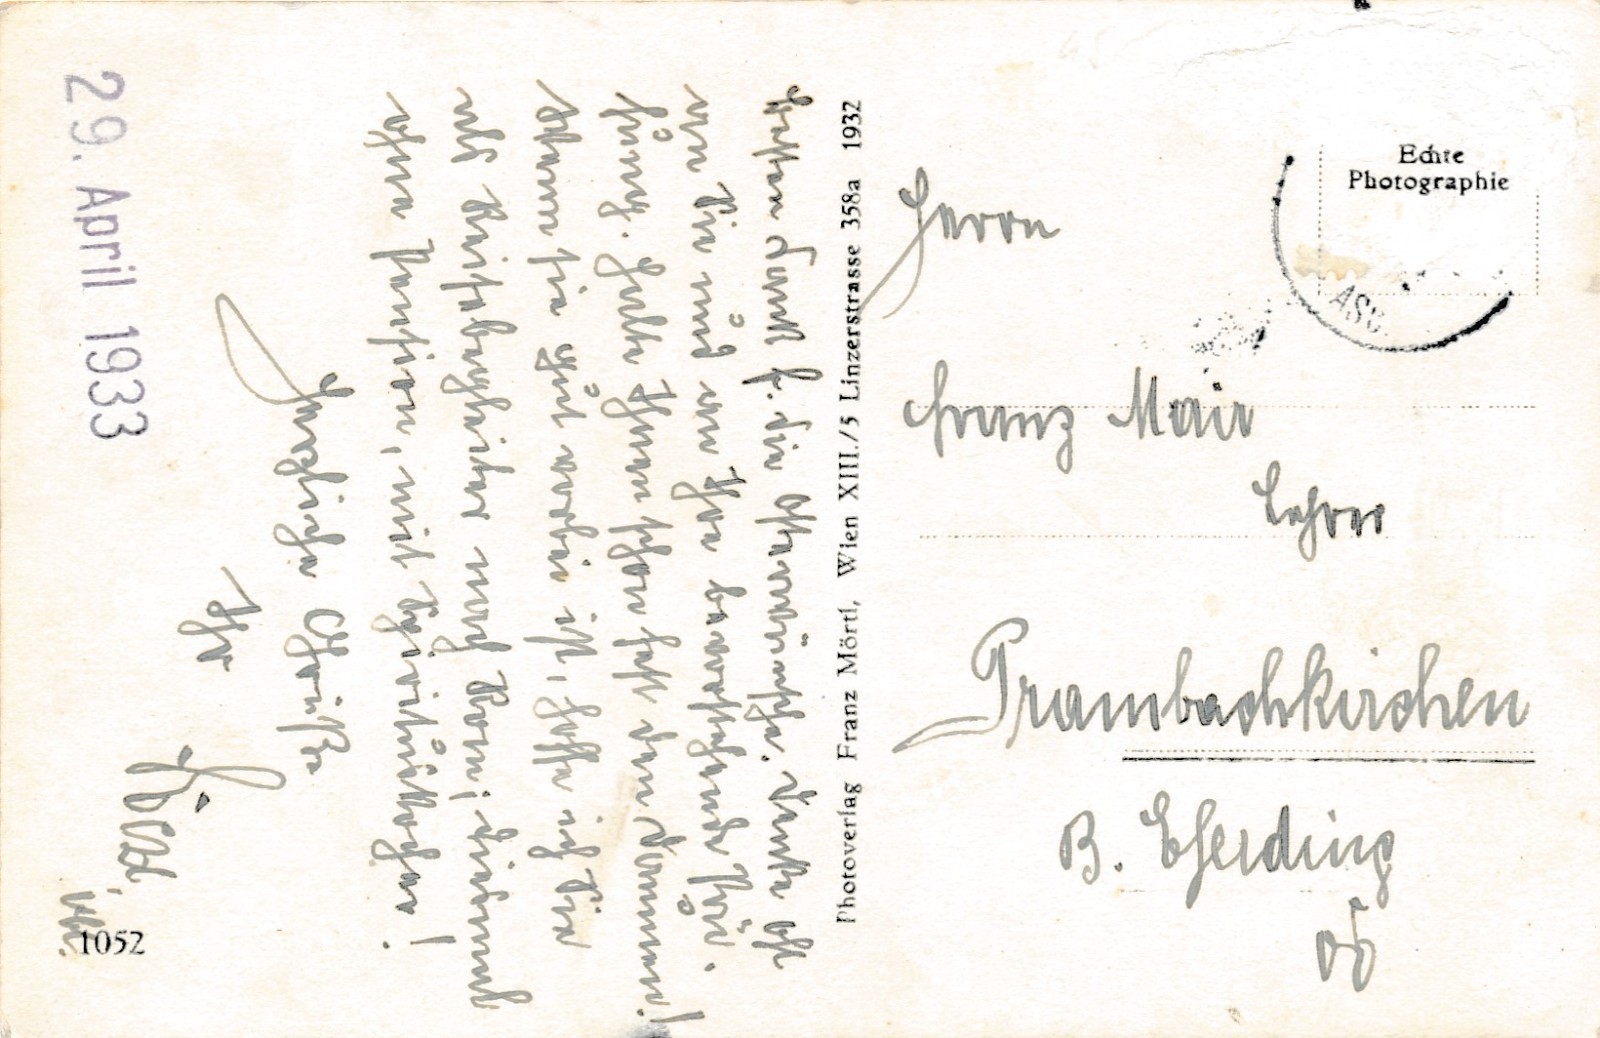 29. April 1933
Besten Dank f. die Osterwünsche. Denke oft
an Sie und an Ihre bevorstehende Prü-
fung. Halte Ihnen schon fest den Daumen!
Wenn sie gut vorbei ist, hoffe ich Sie
als Reisebegleiter nach Rom; diesmal
ohne Pension, mit Spirituskocher!
Herzliche Grüße
Ihr
1052
Photoverlag Franz Mörtl, Wien XIII./5 Linzerstrasse 358a 1932
Echte
Photographie
Herrn
Franz Mair
Lehrer
Prambachkirchen
B. Eferding
OÖ